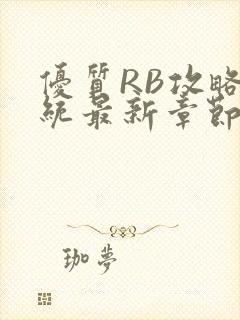 優質RB攻略
統最新章節
珈夢